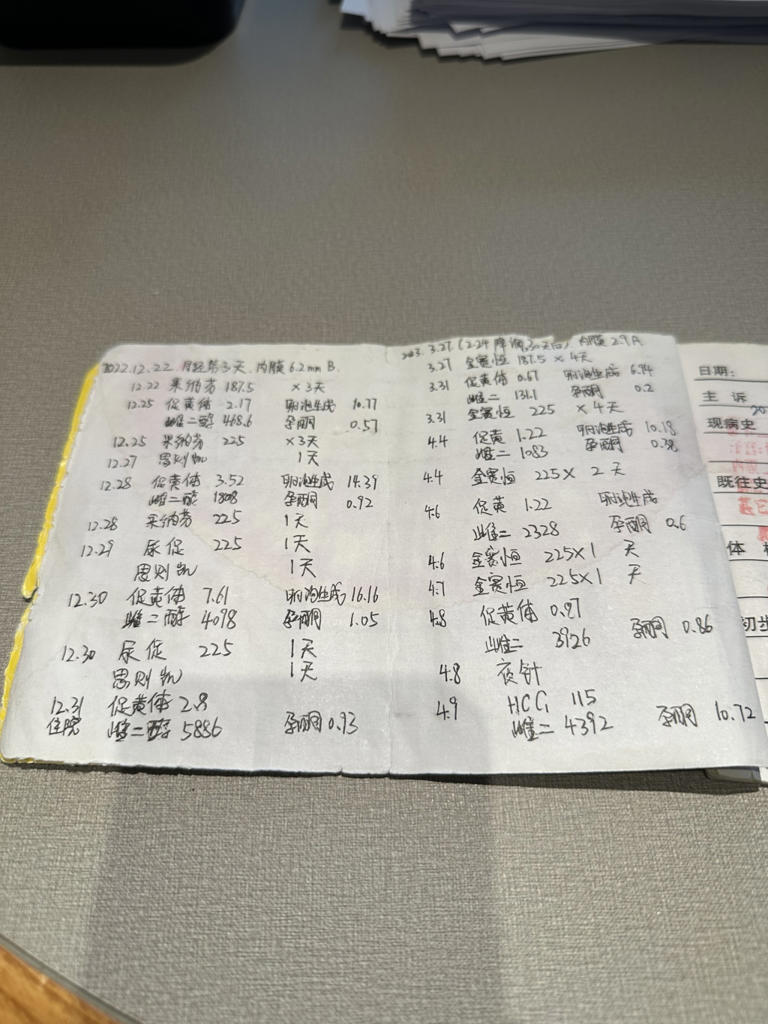 2022.12.22 月经第3天 内膜6.2mm B.
12.22 果纳芬 187.5 ×3天
12.25 促黄体 2.17 卵泡生成 10.77
雌二醇 468.6 孕酮 0.57
12.25 果纳芬 225 ×3天
12.27 思则凯 1天
12.28 促黄体 3.52 卵泡生成 14.39
雌二醇 1808 孕酮 0.92
12.28 果纳芬 225 1天
12.29 尿促 225 1天
思则凯 1天
12.30 促黄体 7.61 卵泡生成 16.16
雌二醇 4098 孕酮 1.05
12.30 尿促 225 1天
思则凯 1天
12.31 促黄体 2.8
住院 雌二醇 5886 孕酮 0.93
2023.3.27 (2.24 降调,30天后) 内膜 2.9 A
3.27 金赛恒 187.5 × 4天
3.31 促黄体 0.67 卵泡生成 6.94
雌二 131.1 孕酮 0.2
3.31 金赛恒 225 × 4天
4.4 促黄 1.22 卵泡生成 10.18
雌二 1083 孕酮 0.38
4.4 金赛恒 225 × 2天
4.6 促黄 1.22 卵泡生成
雌二 2328 孕酮 0.6
4.6 金赛恒 225×1 天
4.7 金赛恒 225×1 天
4.8 促黄体 0.87
雌二 3926 孕酮 0.86
4.8 夜针
4.9 HCG 115
雌二 4392 孕酮 10.72
日期:
主 诉
20
现病史
既往史
体
初步